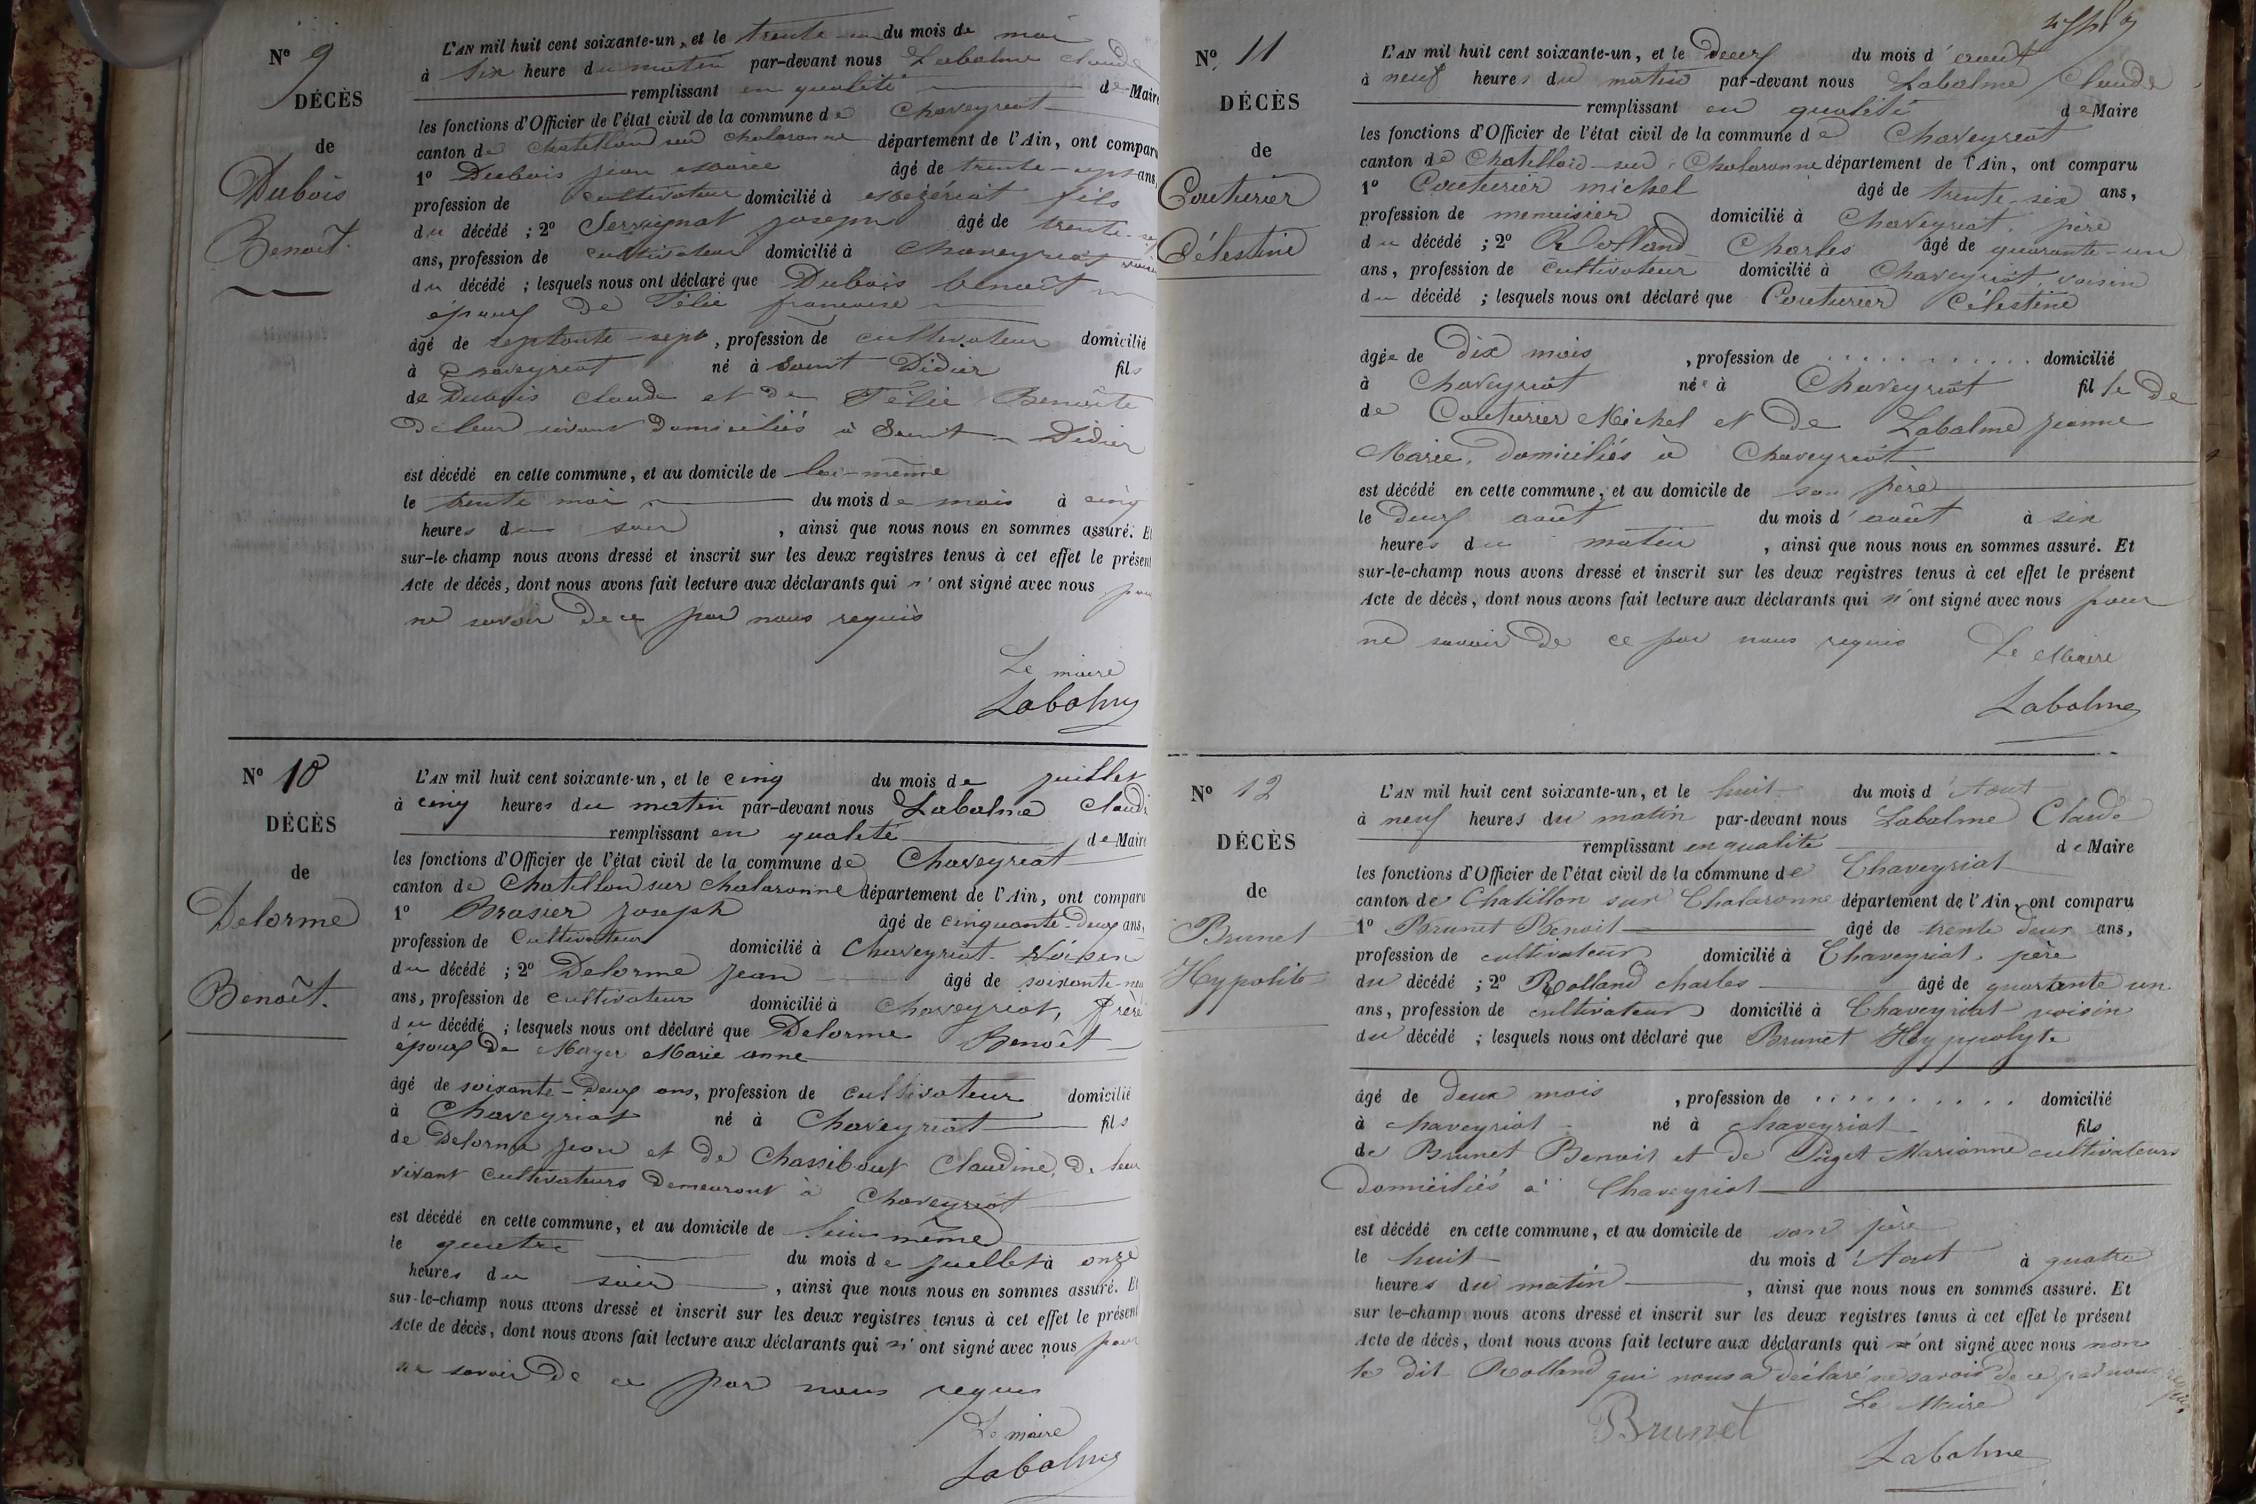 N° 9
DÉCÈS
de
Dubois
Benoît.
L'AN mil huit cent soixante-un, et le trente-un du mois de mai
à six heure du matin par-devant nous Labalme Claude
remplissant en qualité de Maire
les fonctions d'Officier de l'état civil de la commune de Chaveyriat
canton de Chatillon sur Chalaronne département de l'Ain, ont comparu
1° Dubois jean marie âgé de trente-sept ans,
profession de cultivateur domicilié à Mézériat fils
du décédé ; 2° Servignat joseph âgé de trente-
ans, profession de cultivateur domicilié à Chaveyriat voisin
du décédé ; lesquels nous ont déclaré que Dubois benoît
époux de Félié francoise
âgé de septante-sept, profession de cultivateur domicilié
à Chaveyriat né à Saint Didier fils
de Dubois claude et de Félié Benoîte
De leur vivant domiciliés à Saint-Didier
est décédé en cette commune, et au domicile de lui-même
le trente mai du mois de mai à cinq
heures du soir, ainsi que nous nous en sommes assuré. Et
sur-le-champ nous avons dressé et inscrit sur les deux registres tenus à cet effet le présent
Acte de décès, dont nous avons fait lecture aux déclarants qui n'ont signé avec nous pour
ne savoir De ce par nous requis
Le maire
Labalme
N° 10
DÉCÈS
de
Delorme
Benoît.
L'AN mil huit cent soixante-un, et le cinq du mois de juillet
à cinq heures du matin par-devant nous Labalme Claude
remplissant en qualité de Maire
les fonctions d'Officier de l'état civil de la commune de Chaveyriat
canton de Chatillon sur Chalaronne département de l'Ain, ont comparu
1° Brasier joseph âgé de cinquante-Deux ans,
profession de Cultivateur domicilié à Chaveyriat Voisin
du décédé ; 2° Delorme jean âgé de soixante-
ans, profession de cultivateur domicilié à Chaveyriat, frère
du décédé ; lesquels nous ont déclaré que Delorme Benoît
époux De Moyer Marie anne
âgé de soixante-Deux ans, profession de cultivateur domicilié
à Chaveyriat né à Chaveyriat fils
de Delorme jean et de Chassibout Claudine, De leur
vivant cultivateurs Demeurant à Chaveyriat
est décédé en cette commune, et au domicile de lui-même
le quatre du mois de juillet à onze
heures du soir, ainsi que nous nous en sommes assuré. Et
sur-le-champ nous avons dressé et inscrit sur les deux registres tenus à cet effet le présent
Acte de décès, dont nous avons fait lecture aux déclarants qui n'ont signé avec nous pour
ne savoir De ce par nous requis
Le maire
Labalme
N° 11
DÉCÈS
de
Couturier
Célestine
L'AN mil huit cent soixante-un, et le Deux du mois d'août
à neuf heures du matin par-devant nous Labalme Claude
remplissant en qualité de Maire
les fonctions d'Officier de l'état civil de la commune de Chaveyriat
canton de Chatillon-sur-Chalaronne département de l'Ain, ont comparu
1° Couturier michel âgé de trente-six ans,
profession de menuisier domicilié à Chaveyriat, père
du décédé ; 2° Rolland Charles âgé de quarante-un
ans, profession de cultivateur domicilié à Chaveyriat, voisin
du décédé ; lesquels nous ont déclaré que Couturier Célestine
âgée de Dix mois, profession de . . . . . . . . . . . domicilié
à Chaveyriat née à Chaveyriat fille De
de Couturier Michel et De Labalme jeanne
Marie, Domiciliés à Chaveyriat
est décédé en cette commune, et au domicile de son père
le Deux août du mois d'août à six
heures du matin, ainsi que nous nous en sommes assuré. Et
sur-le-champ nous avons dressé et inscrit sur les deux registres tenus à cet effet le présent
Acte de décès, dont nous avons fait lecture aux déclarants qui n'ont signé avec nous pour
ne savoir De ce par nous requis
Le Maire
Labalme
N° 12
DÉCÈS
de
Brunet
Hypolite
L'AN mil huit cent soixante-un, et le huit du mois d'Aout
à neuf heures du matin par-devant nous Labalme Claude
remplissant en qualité de Maire
les fonctions d'Officier de l'état civil de la commune de Chaveyriat
canton de Chatillon sur Chalaronne département de l'Ain, ont comparu
1° Brunet Benoit âgé de trente deux ans,
profession de cultivateur domicilié à Chaveyriat, père
du décédé ; 2° Rolland charles âgé de quarante un
ans, profession de cultivateur domicilié à Chaveyriat voisin
du décédé ; lesquels nous ont déclaré que Brunet Hyppolyte
âgé de deux mois, profession de . . . . . . . . . . domicilié
à chaveyriat né à chaveyriat fils
de Brunet Benoit et de Puget Marianne cultivateurs
domiciliés à Chaveyriat
est décédé en cette commune, et au domicile de son père
le huit du mois d'Aout à quatre
heures du matin, ainsi que nous nous en sommes assuré. Et
sur le-champ nous avons dressé et inscrit sur les deux registres tenus à cet effet le présent
Acte de décès, dont nous avons fait lecture aux déclarants qui ont signé avec nous non
le dit Rolland qui nous a déclaré ne savoir de ce par nous requis
Le Maire
Brunet
Labalme